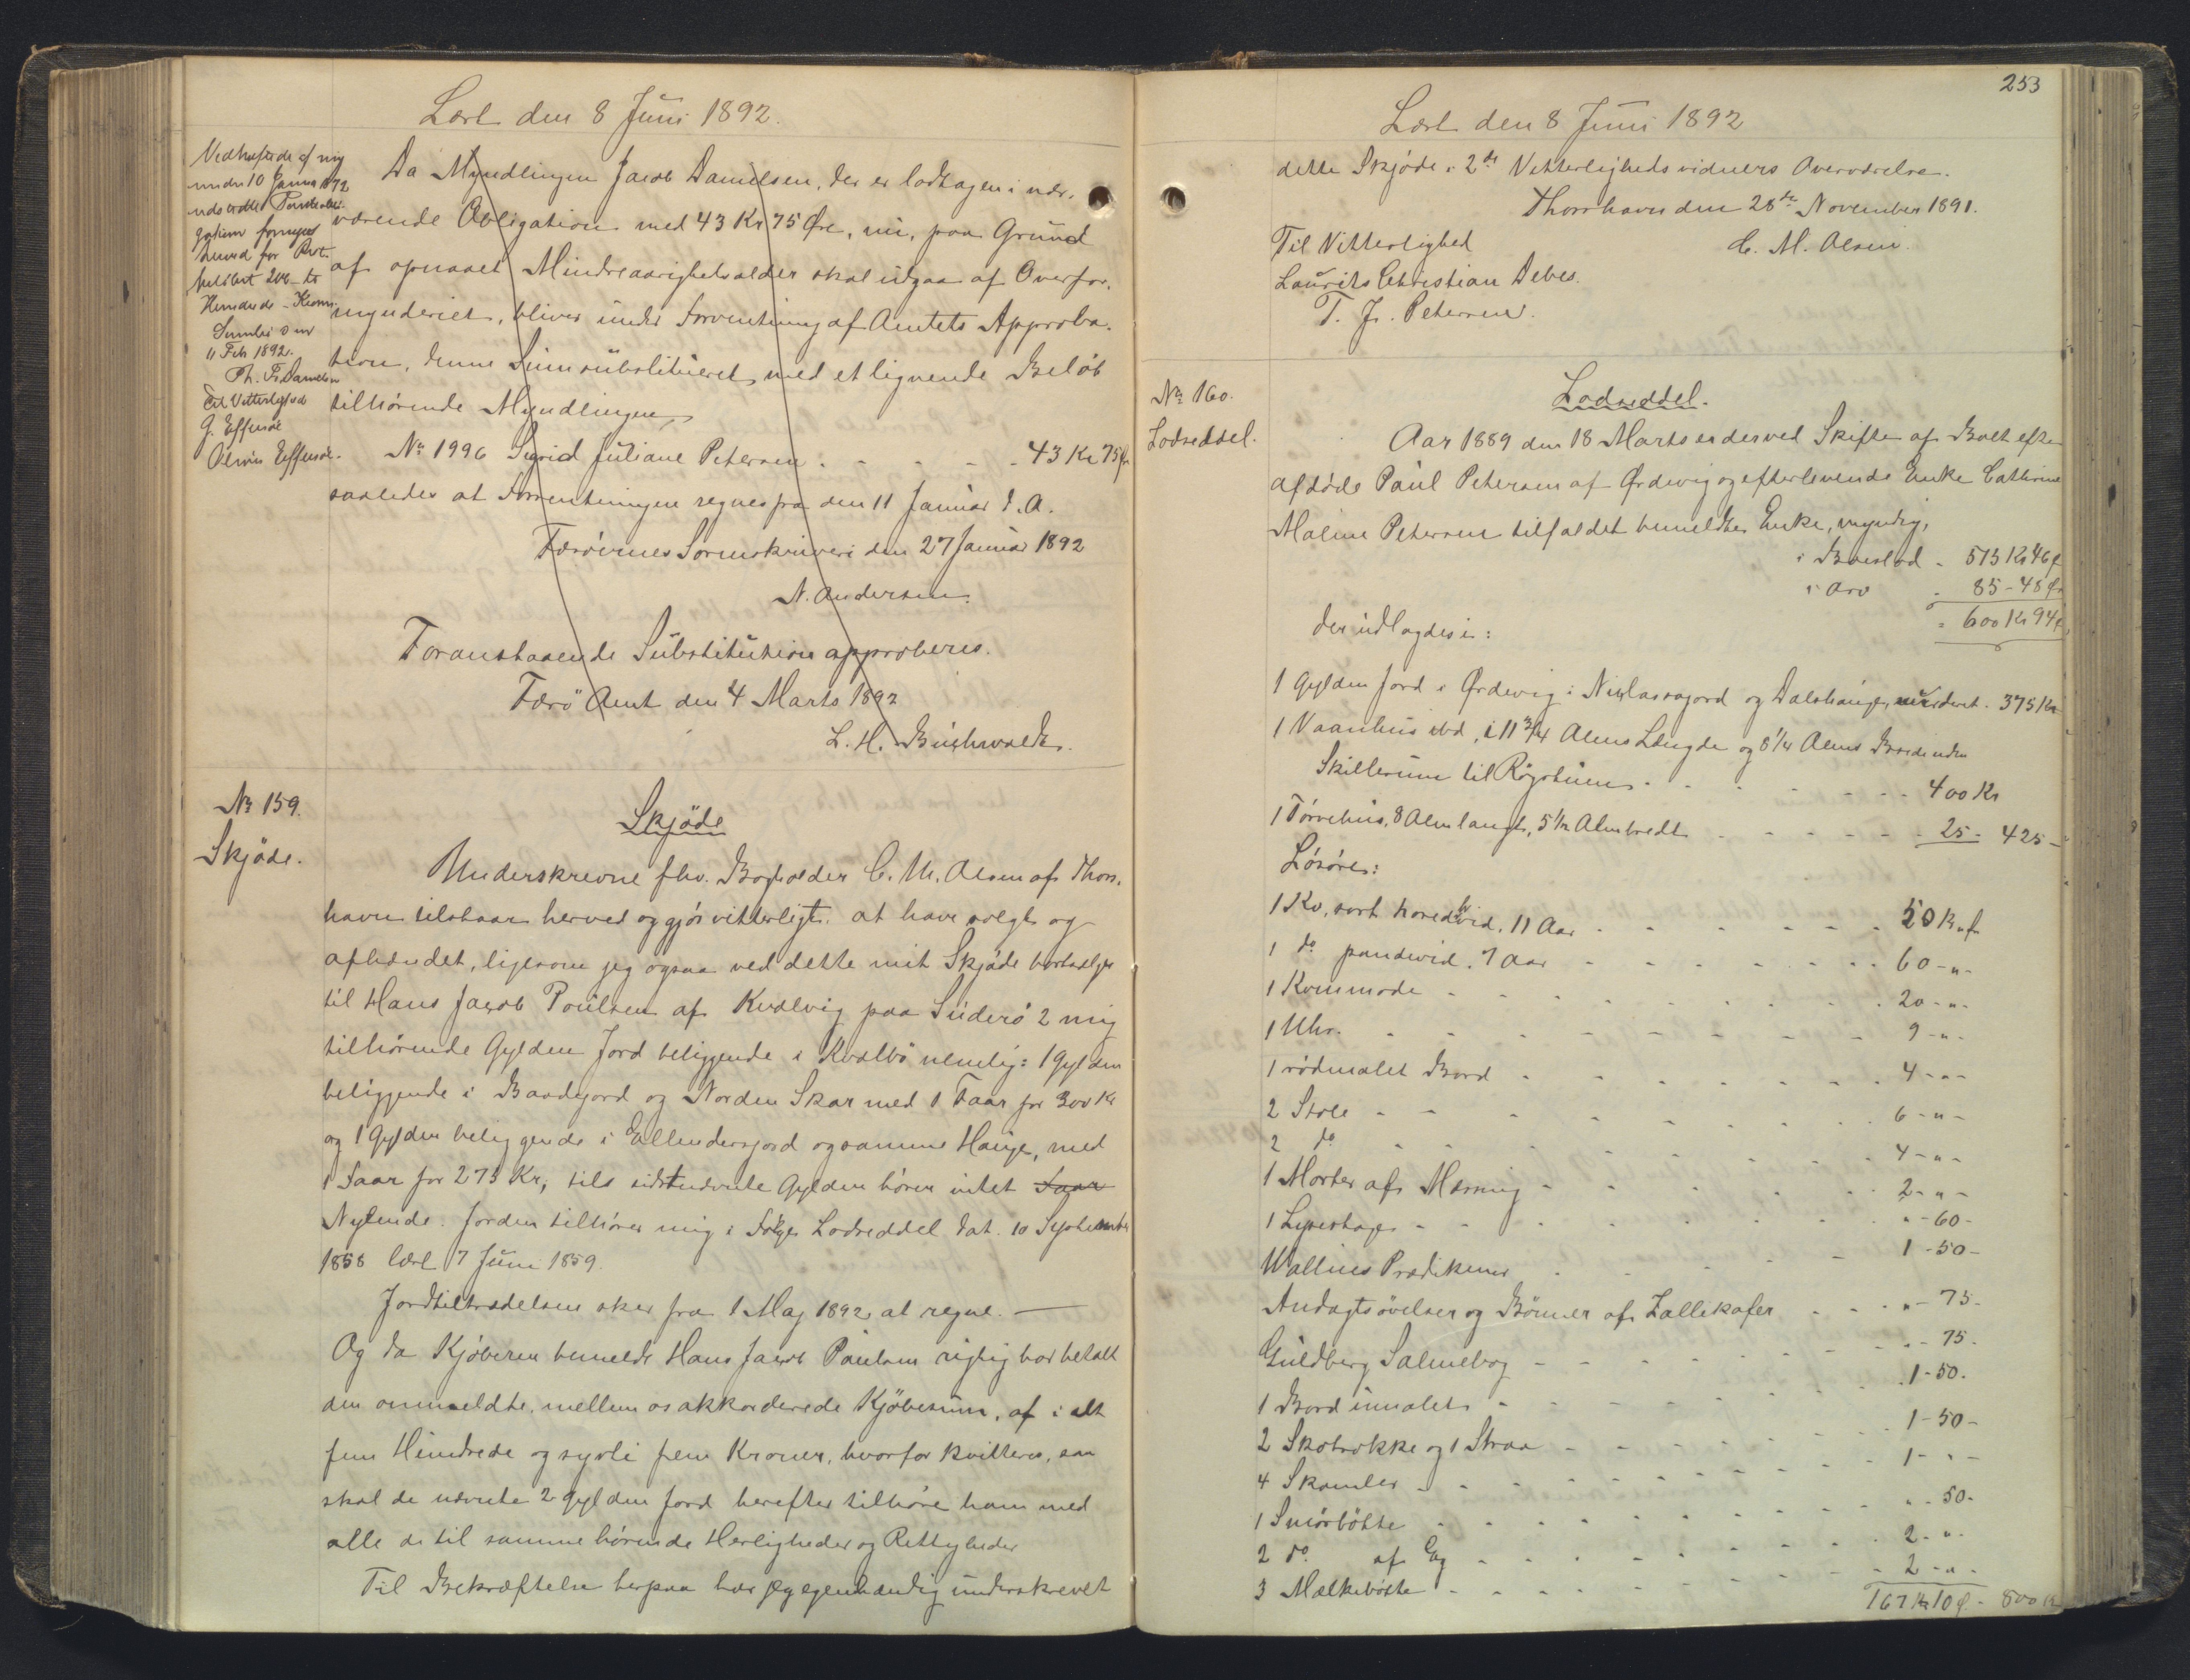 Læst den 8 Juni 1892.
Vedhæftede af mig
under 10 Januar 1872
udstedte
fornyes
herved for Rest
beløbet 200 Kr
Sumbø
11 Feb 1892.
Ph. Fr Danielsen
Til Vitterlighed
G. Effersøe
Oliver Effersøe.
Da Myndlingen Jacob Danielsen, der er lodtagen i nær-
værende Obligation med 43 Kr 75 Øre, nu, paa Grund
af opnaaet Mindreaarighetsalder skal udgaa af Overfor-
mynderiet, bliver under Forventning af Amtets Approba-
tion, denne Sum substitueret med et lignende Beløb
tilhørende Myndlingen
No 1996 Sigrid Juliane Petersen . - - - - 43 Kr 75 Ø
saaledes at Forrentningen regnes fra den 11 Januar d. A.
Færøernes Sorenskriveri den 27 Januar 1892
N. Andersen.
Foranstaaende Substitution approberes.
Færö Amt den 4 Marts 1892
L. H. Buchwaldt.
No 159.
Skjøde.
Skjøde
Underskrevne fhv. Bogholder C. M. Olsen af Thors-
havn tilstaar herved og gjör vitterligt. at have solgt og
afhændet, ligesom jeg ogsaa ved dette mit Skjøde bortsælger
til Hans Jacob Poulsen af Kvalvig paa Suderö 2 mig
tilhørende Gylden Jord beliggende i Kvalbö nemlig: 1 Gylden
beliggende i Baadegjord og Norden Skar med 1 Faar for 300 Kr
og 1 Gylden beliggende i Ellendersjord og samme Hauge, med
1 Faar for 275 Kr, til sidstnævnte Gylden hörer intet Faar
Nylende. Jorden tilhörer mig i Følge Lodseddel dat. 10 September
1858 læst 7 Juni 1859.
Jordtiltrædelsen sker fra 1 Maj 1892 at regne. —
Og da Kjøberen bemeldte Hans Jacob Paulsen rigtig har betalt
den ommeldte, mellem os akkorderede Kjöbesum, af i alt
fem Hundrede og syvti fem Kroner, hvorfor kvitteres, saa
skal de nævnte 2 Gylden Jord herefter tilhöre ham med
alle de til samme hörende Herligheder og Rettigheder
Til Bekræftelse herpaa har jeg egenhændig underskrevet
253
Læst den 8 Juni 1892
dette Skjöde i 2de Vitterligheds vidners Overværelse.
Thorshavn den 28de November 1891.
Til Vitterlighed
C. M. Olsen.
Laurits Christian Debes.
T. J. Petersen.
No 160.
Lodseddel.
Lodseddel.
Aar 1889 den 18 Marts er der ved Skifte af Boet efter
afdöde Paul Petersen af Ördevig og efterlevende Enke Cathrine
Maline Petersen tilfaldet bemeldte Enke, myndig,
i Boeslod - 515 Kr 46 Ø
i Arv - 85 - 48 Ø
= 600 Kr 94 Ø
der udlagdes i:
1 Gylden Jord i Ördevig i Niclassagjord og Dalshauge, vurderet. 375 Kr
1 Vaanhus ibd, i 11 3/4 Alens Længde og 8 1/4 Alens Brede uden
Skillerum til Rögstuen - - - - - 400 Kr
1 Törvehus, 8 Alen langt, 5 1/2 Alen bredt - - - - - 25 - 425 -
Lösöre:
1 Ko, sort hovedhvid, 11 Aar - - - - - 50 Kr „ Ø
1 do pandhvid, 7 Aar - - - - - 60 - „ -
1 Kommode - - - - - 20 - „ -
1 Uhr. - - - - - 9 - „ -
1 rödmalet Bord - - - - - 4 - „ -
2 Stole - - - - - 6 - „ -
2 do - - - - - 4 - „ -
1 Morter af Messing - - - - - 2 - „ -
1 Lysestage - - - - - „ - 60 -
Wallins Prædikener - - - - - 1 - 50 -
Andagtsøvelser og Bönner af Zollikofer - - - „ - 75 -
Guldberg Salmebog - - - - - „ - 75 -
1 Bord umalet - - - - - 1 - 50.
2 Skotrokke og 1 Straa - - - - - 1 - 50 -
4 Skamler - - - - - 1 - „ -
1 Smörbötte - - - - - „ - 50 -
2 do af Eg - - - - - 2 - „ -
3 Mælkebötte - - - - - 2 - „ -
167 Kr 10 Ø - 800 Kr